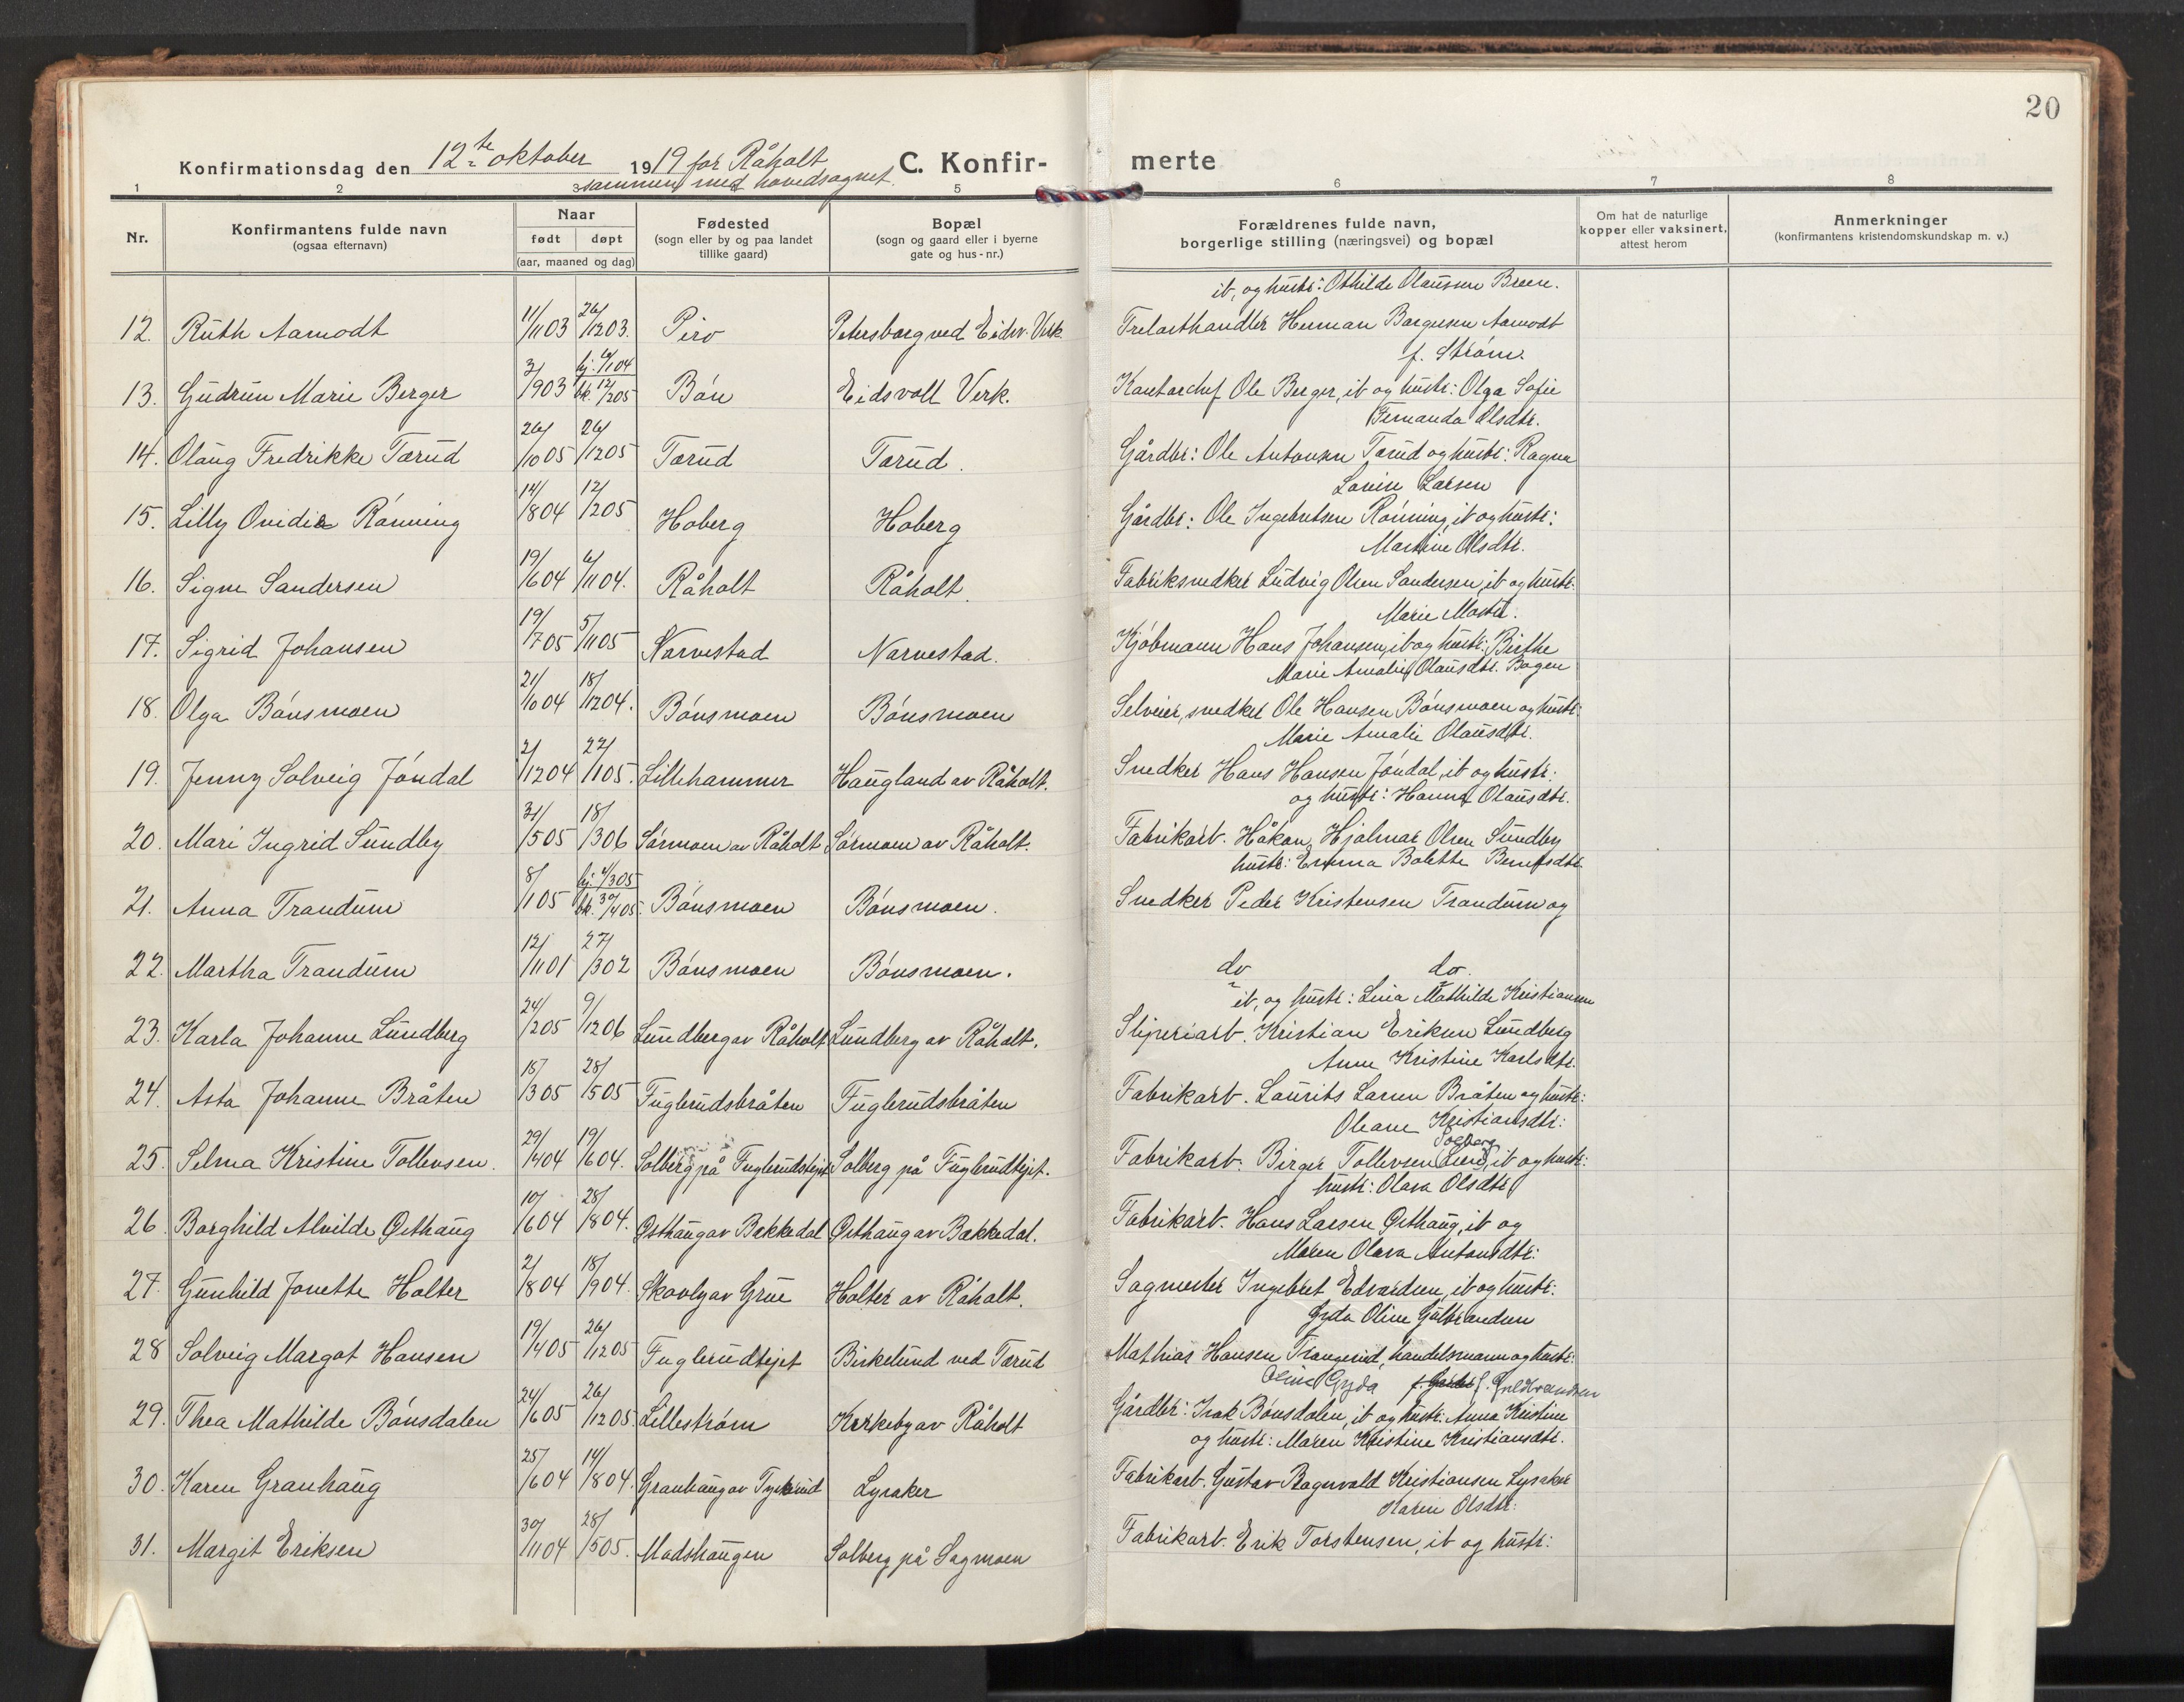 20
Konfirmationsdag den 12te oktober 1919 for Råholt C. Konfirmerte
sammen med hovedsognet.
1 2 3 5 6 7 8
Nr. Konfirmantens fulde navn (ogsaa efternavn) Naar født døpt (aar, maaned og dag) Fødested (sogn eller by og paa landet tillike gaard) Bopæl (sogn og gaard eller i byerne gate og hus-nr.) Forældrenes fulde navn, borgerlige stilling (næringsvei) og bopæl Om hat de naturlige kopper eller vaksinert, attest herom Anmerkninger (konfirmantens kristendomskundskap m. v.)
ib, og hustr: Othilde Olausen Breen.
12. Ruth Aamodt 11/11 03 26/12 03. Piro Petersborg ved Eidsv. Verk. Trelasthandler Herman Borgersen Aamodt
f. Strøm.
13. Gudrun Marie Berger 3/9 03 hj. 6/1 04 bk. 12/2 05 Bøn Eidsvoll Verk. Kontorchef Ole Berger, ib og hustr: Olga Sofie
Fernanda Olsdtr.
14. Olaug Fredrikke Tærud 26/10 05 26/12 05 Tærud Tærud. Gårdbr: Ole Antonsen Tærud og hustr: Ragna
Lovise Larsen
15. Lilly Ovidia Rønning 14/8 04 12/2 05 Hoberg Hoberg Gårdbr: Ole Ingebretsen Rønning, ib og hustr:
Martine Olsdtr.
16. Signe Sandersen 19/6 04 6/11 04. Råholt Råholt. Fabriksnedker Ludvig Olsen Sandersen, ib og hustr:
Marie
17. Sigrid Johansen 19/7 05 5/11 05 Narvestad Narvestad. Kjøbmann Hans Johansen, ib og hustr: Birthe
Marie Amalie Olausdtr. Bogen
18. Olga Bønsmoen 21/10 04 18/12 04. Bønsmoen Bønsmoen Selveier, snedker Ole Hansen Bønsmoen og hustr:
Marie Amalie Olausdtr.
19. Jenny Solveig Jøndal 2/12 04 22/1 05. Lillehammer Haugland av Råholt. Snedker Hans Hansen Jøndal, ib og hustr:
og hustr: Hanna Olausdtr.
20. Mari Ingrid Sundby 31/5 05 18/3 06 Sørmoen av Råholt Sørmoen av Råholt. Fabrikarb. Håkon Hjalmar Olsen Sundby
hustr: Emma Bolette Berntsdtr.
21. Anna Trandum 8/1 05 hj. 4/3 05 bk. 30/4 05. Bønsmoen Bønsmoen. Snedker Peder Kristensen Trandum og
22. Martha Trandum 12/11 01 27/3 02 Bønsmoen Bønsmoen. do do.
ib, og hustr: Lina Mathilde Kristiansen
23. Karla Johanne Lundberg 24/2 05 9/12 06 Lundberg av Råholt Lundberg av Råholt. Sliperiarb. Kristian Eriksen Lundberg
Anne Kristine Karlsdtr.
24. Asta Johanne Bråten 15/3 05 28/5 05 Fuglerudsbråten Fuglerudsbråten Fabrikarb. Laurits Larsen Bråten og hustr:
Oleane Kristiansdtr:
Solberg
25. Selma Kristine Tollevsen. 29/4 04 19/6 04. Solberg på Fuglerudsejet Solberg på Fuglerudejet. Fabrikarb. Birger Tollevsen ib og hustr:
hustr: Olava Olsdtr.
26. Borghild Alvilde Østhaug 10/6 04 28/8 04. Østhaug av Bækkedal Østhaug av Bækkedal. Fabrikarb. Hans Larsen Østhaug, ib og
Maren Olava Antonsdtr:
27. Gunhild Jonette Holter 2/8 04 18/9 04. Skovly av Grue Holter av Råholt. Sagmester Ingebret Edvardsen, ib og hustr:
Gyda Oline Gulbrandsen
28 Solveig Margot Hansen 19/4 05 26/12 05 Fuglerudejet Birkelund ved Tærud Mathias Hansen Trangerud, handelsmann og hustr:
Oline Gyda f. Guldbrandsen
29. Thea Mathilde Bønsdalen 24/6 05 26/12 05. Lillestrøm Kirkeby av Råholt Gårdbr: Isak Bønsdalen, ib og hustr: Anna Kristine
og hustr: Maren Kristine Kristiansdtr.
30. Karen Granhaug 25/6 04 14/8 04. Granhaug av Tykerud Lysaker Fabrikarb. Gustav Ragnvald Kristiansen Lysaker
Karen Olsdtr:
31. Margit Eriksen 30/11 04 28/5 05. Madshaugen Solberg på Sagmoen Fabrikarb. Erik Torstensen, ib og hustr: